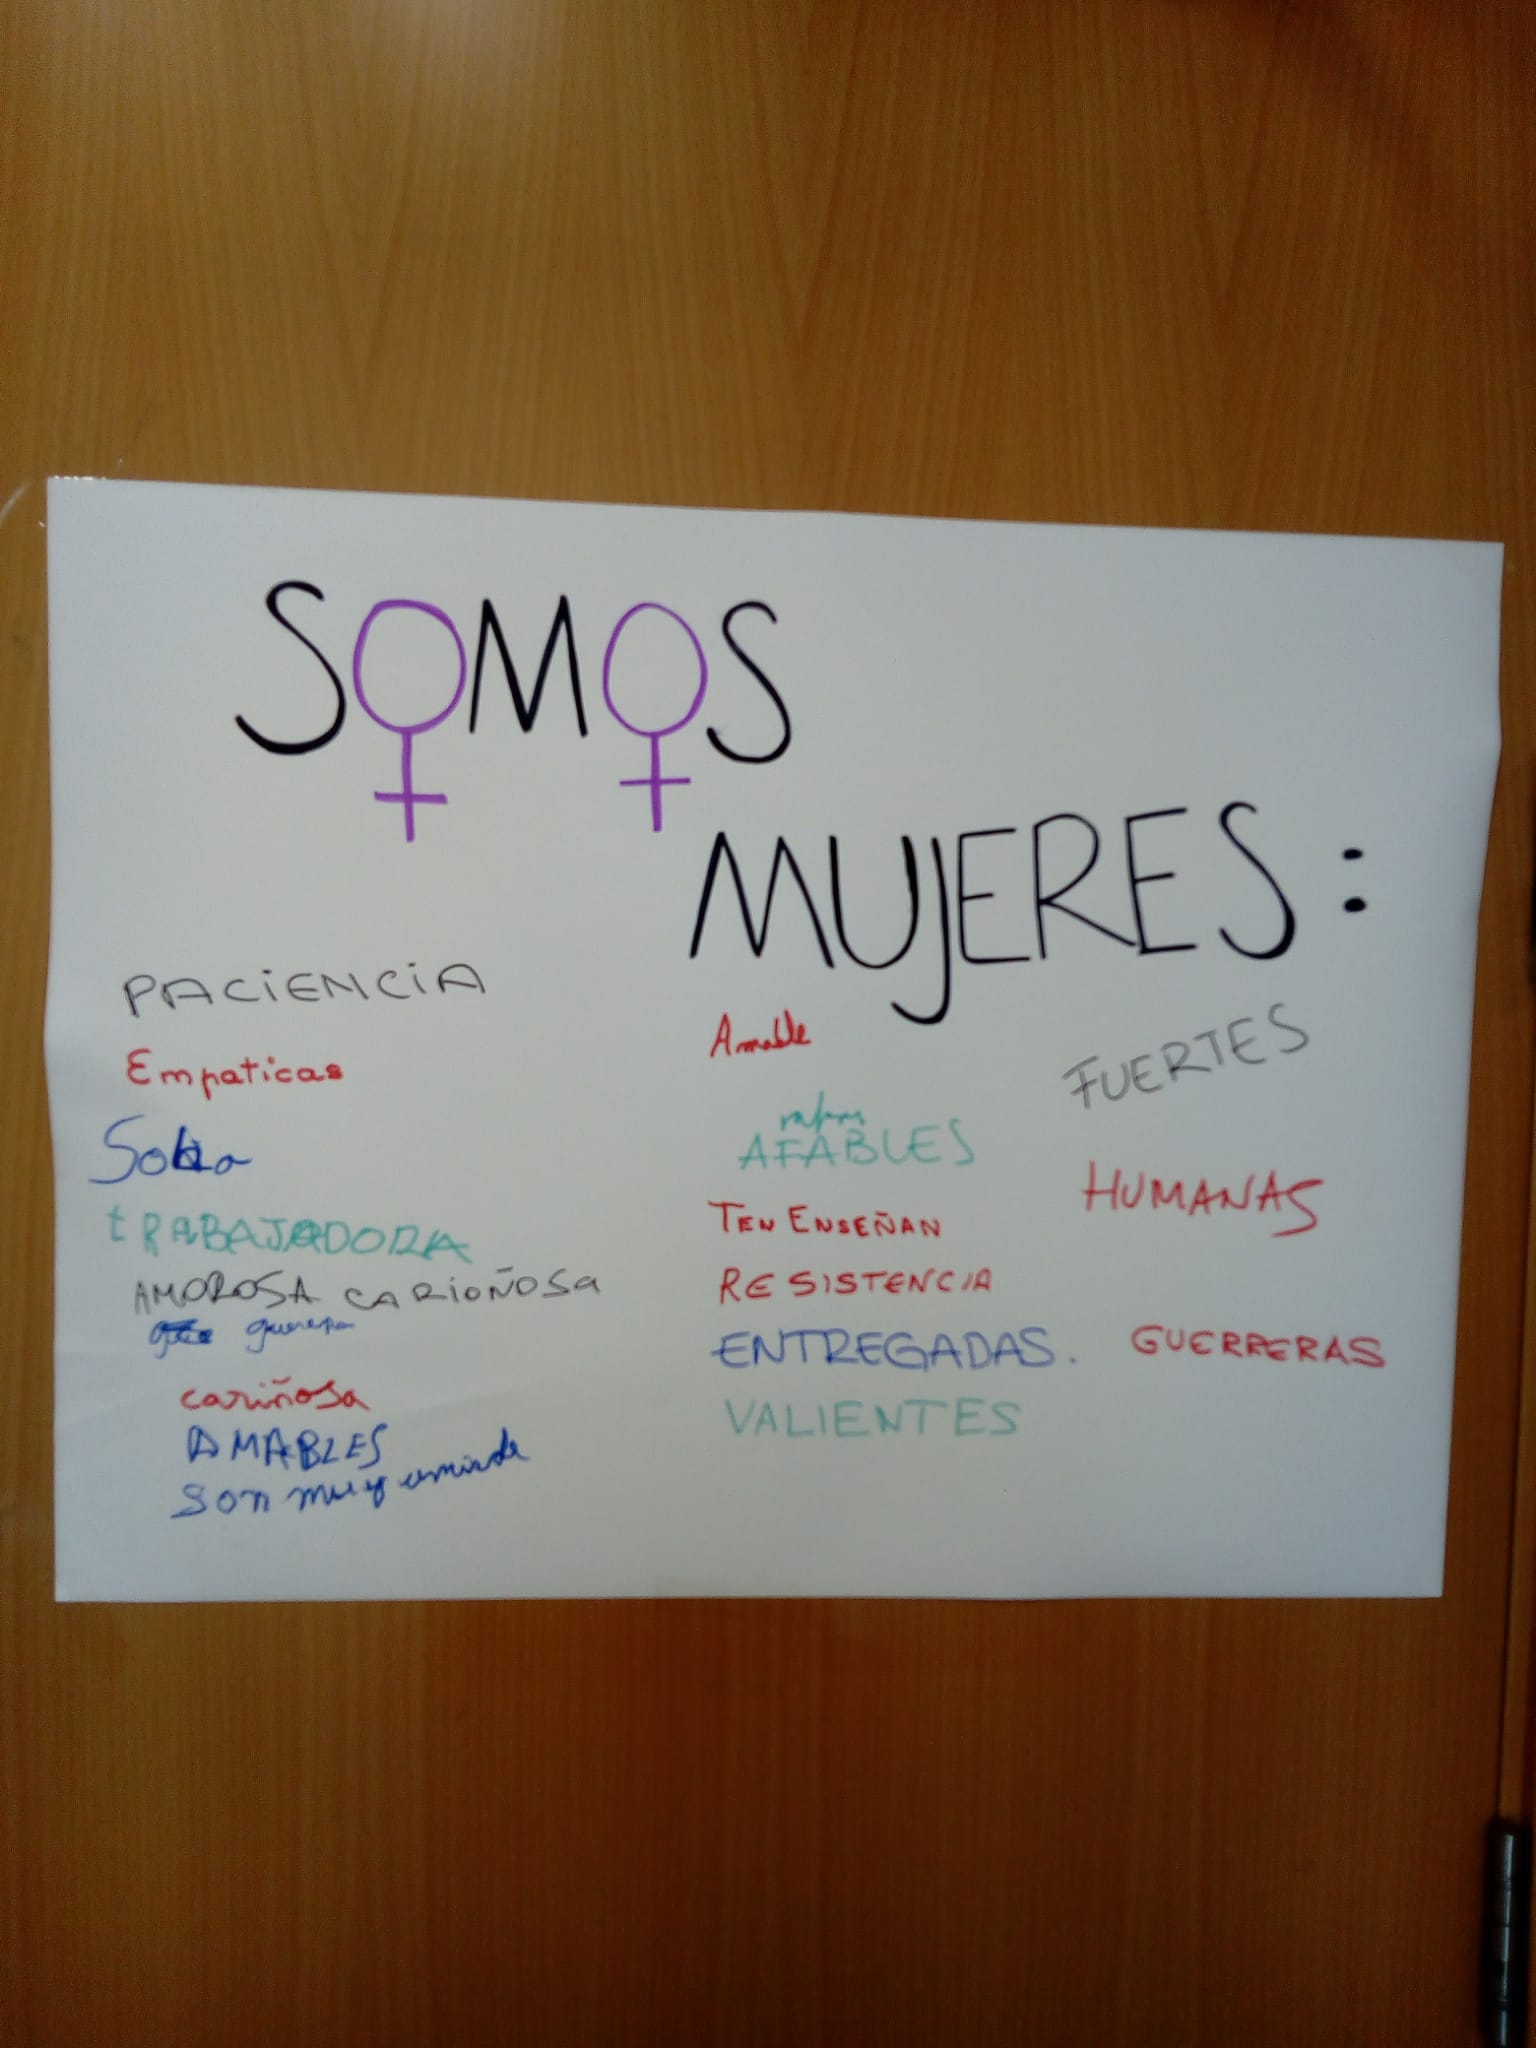 SOMOS
MUJERES :
PACIENCIA
Empaticas
tRABAJADORA
AMOROSA CARIOÑOSA
cariñosa
AMABLES
son muy
Amable
AFABLES
TEN ENSEÑAN
RESISTENCIA
ENTREGADAS.
VALIENTES
FUERTES
HUMANAS
GUERRERAS